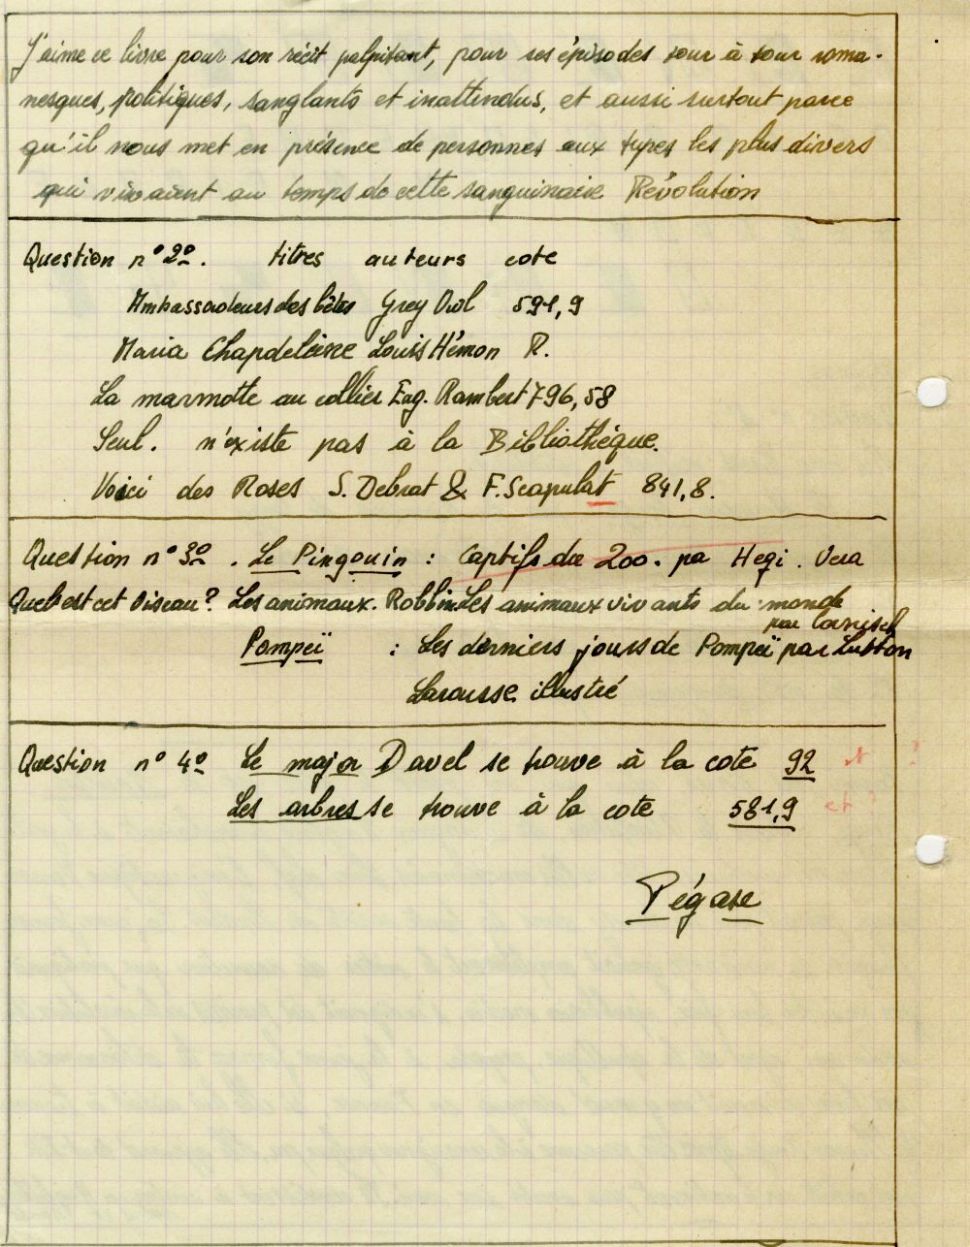 J'aime ce livre pour son récit palpitant, pour ses épisodes tour à tour roma-
nesques, politiques, sanglants et inattendus, et aussi surtout parce
qu'il nous met en présence de personnes aux types les plus divers
qui vivaient au temps de cette sanguinaire Révolution
Question n° 2º. titres auteurs cote
Ambassadeurs des bêtes Grey Owl 591,9
Maria Chapdelaine Louis Hémon R.
La marmotte au collier Eug. Rambert 796,58
Seul. n'existe pas à la Bibliothèque.
Voici des Roses S. Debrat & F. Scapulat 841,8.
Question n° 3º. Le Pingouin : Captifs du Zoo. pa Hegi. Vera
Quel est cet Oiseau? Les animaux. Robbin Les animaux vivants du monde
par
Pompeï : Les derniers jours de Pompeï par Lutton
Larousse illustré
Question n° 4º Le major Davel se trouve à la cote 92
Les arbres se trouve à la cote 581,9 et ?
Pégase